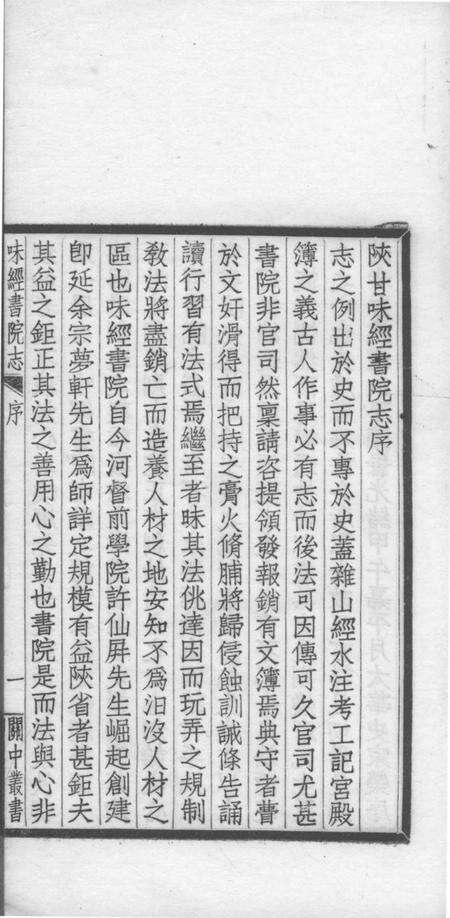 陝甘味經書院志序
志之例出於史而不專於史蓋雜山經水注考工記宮殿
簿之義古人作事必有志而後法可因傳可久官司尤甚
書院非官司然稟請咨提領發報銷有文簿焉典守者瞢
於文奸滑得而把持之膏火脩脯將歸侵蝕訓誡條告誦
讀行習有法式焉繼至者昧其法佻達因而玩弄之規制
敎法將盡銷亡而造養人材之地安知不爲汩沒人材之
區也味經書院自今河督前學院許仙屏先生崛起創建
卽延余宗夢軒先生爲師詳定規模有益陝省者甚鉅夫
其益之鉅正其法之善用心之勤也書院是而法與心非
味經書院志
序
一
關中叢書